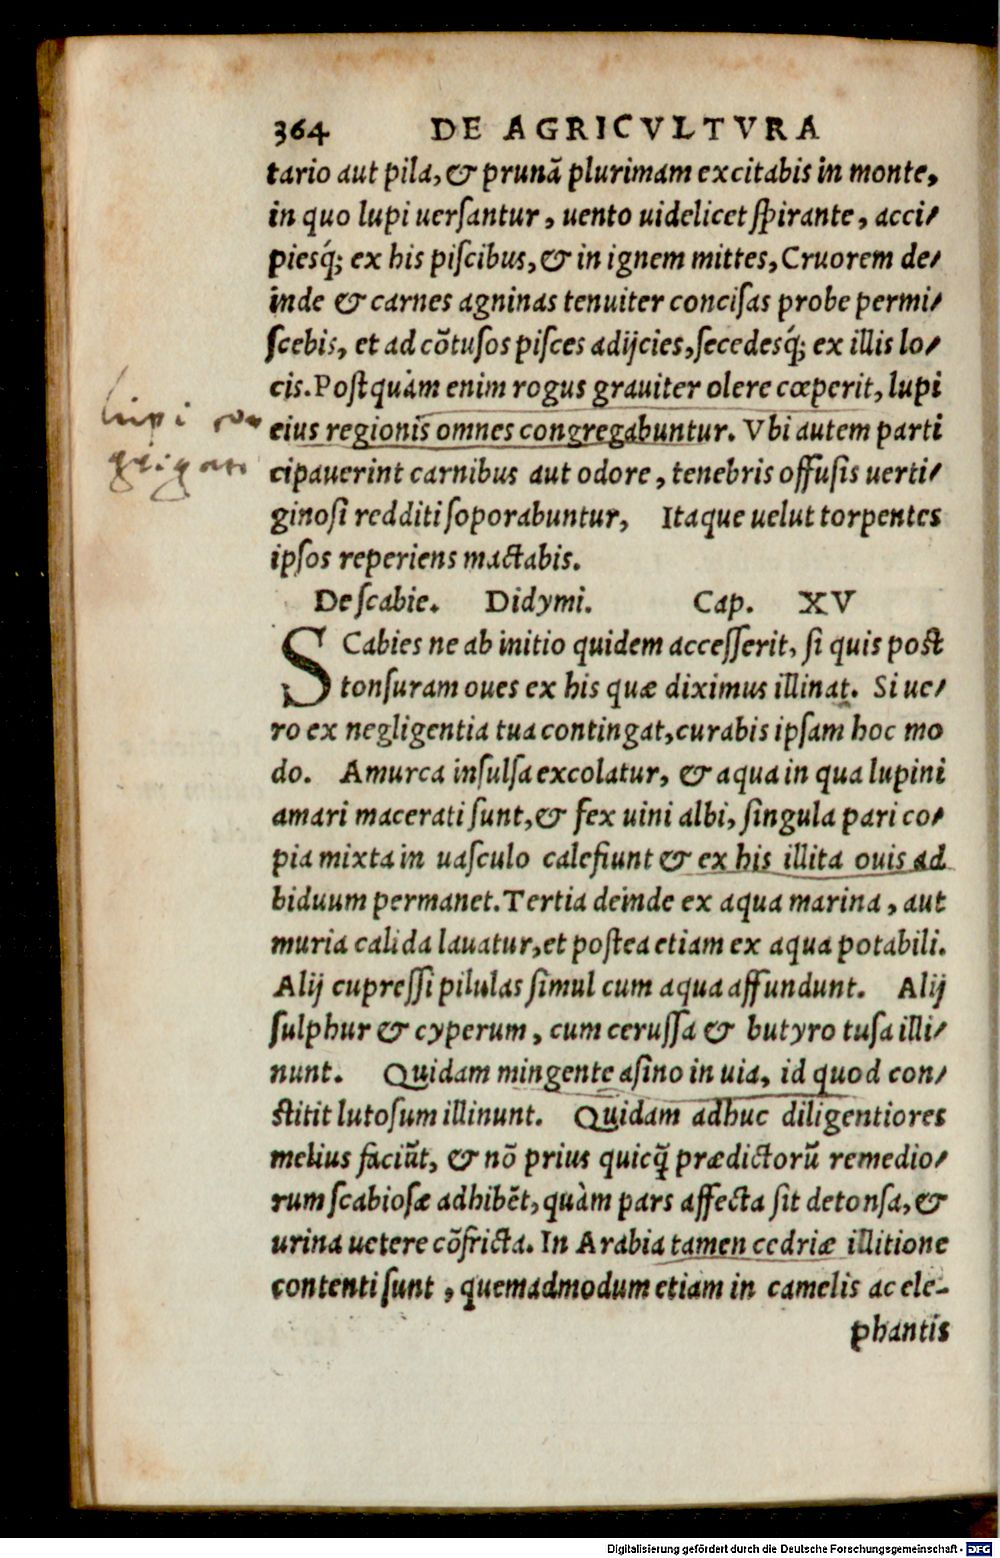 364 DE AGRICVLTVRA
tario aut pila, & prunã plurimam excitabis in monte,
in quo lupi uerſantur, uento uidelicet ſpirante, acci/
pieſq́; ex his piſcibus, & in ignem mittes, Cruorem de/
inde & carnes agninas tenuiter conciſas probe permi/
ſcebis, et ad cõtuſos piſces adijcies, ſecedeſq́; ex illis lo/
cis. Poſtquàm enim rogus grauiter olere cœperit, lupi
eius regionis omnes congregabuntur. Vbi autem parti
cipauerint carnibus aut odore, tenebris offuſis uerti/
ginoſi redditi ſoporabuntur, Itaque uelut torpentes
ipſos reperiens mactabis.
lupi con
gregari
De ſcabie. Didymi. Cap. XV
SCabies ne ab initio quidem acceſſerit, ſi quis poſt
tonſuram oues ex his quæ diximus illinat. Si ue/
ro ex negligentia tua contingat, curabis ipſam hoc mo
do. Amurca inſulſa excolatur, & aqua in qua lupini
amari macerati ſunt, & fex uini albi, ſingula pari co/
pia mixta in uaſculo calefiunt & ex his illita ouis ad
biduum permanet. Tertia deinde ex aqua marina, aut
muria calida lauatur, et poſtea etiam ex aqua potabili.
Alij cupreſſi pilulas ſimul cum aqua affundunt. Alij
ſulphur & cyperum, cum ceruſſa & butyro tuſa illi/
nunt. Quidam mingente aſino in uia, id quod con/
ſtitit lutoſum illinunt. Quidam adhuc diligentiores
melius faciũt, & nõ prius quicq̃ prædictorũ remedio/
rum ſcabioſæ adhibẽt, quàm pars affecta ſit detonſa, &
urina uetere cõfricta. In Arabia tamen cedriæ illitione
contenti ſunt, quemadmodum etiam in camelis ac ele-
phantis
Digitalisierung gefördert durch die Deutsche Forschungsgemeinschaft - DFG